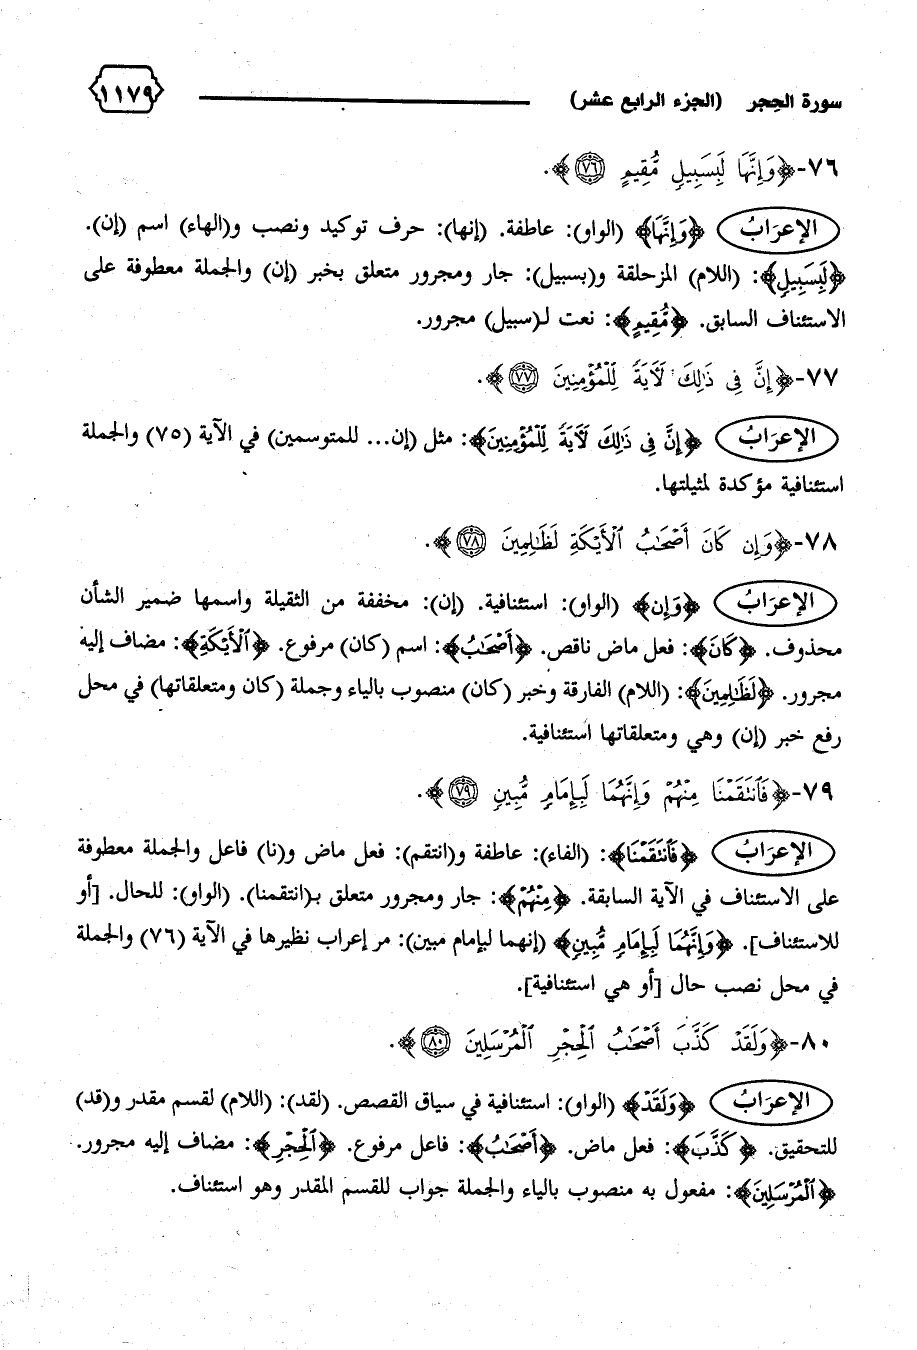 سورة الحِجر (الجزء الرابع عشر) ١١٧٩
٧٦-﴿وَإِنَّهَا لَبِسَبِيلٍ مُّقِيمٍ ٧٦﴾.
الإعرَابُ ﴿وَإِنَّهَا﴾ (الواو): عاطفة. (إنها): حرف توكيد ونصب و(الهاء) اسم (إن).
﴿لَبِسَبِيلٍ﴾: (اللام) المزحلقة و(بسبيل): جار ومجرور متعلق بخبر (إن) والجملة معطوفة على
الاستئناف السابق. ﴿مُّقِيمٍ﴾: نعت لـ(سبيل) مجرور.
٧٧-﴿إِنَّ فِى ذَٰلِكَ لَآيَةً لِّلْمُؤْمِنِينَ ٧٧﴾.
الإعرَابُ ﴿إِنَّ فِى ذَٰلِكَ لَآيَةً لِّلْمُؤْمِنِينَ﴾: مثل (إن... للمتوسمين) في الآية (٧٥) والجملة
استئنافية مؤكدة لمثيلتها.
٧٨-﴿وَإِن كَانَ أَصْحَٰبُ ٱلْأَيْكَةِ لَظَٰلِمِينَ ٧٨﴾.
الإعرَابُ ﴿وَإِن﴾ (الواو): استئنافية. (إن): مخففة من الثقيلة واسمها ضمير الشأن
محذوف. ﴿كَانَ﴾: فعل ماض ناقص. ﴿أَصْحَٰبُ﴾: اسم (كان) مرفوع. ﴿ٱلْأَيْكَةِ﴾: مضاف إليه
مجرور. ﴿لَظَٰلِمِينَ﴾: (اللام) الفارقة وخبر (كان) منصوب بالياء وجملة (كان ومتعلقاتها) في محل
رفع خبر (إن) وهي ومتعلقاتها استئنافية.
٧٩-﴿فَٱنتَقَمْنَا مِنْهُمْ وَإِنَّهُمَا لَبِإِمَامٍ مُّبِينٍ ٧٩﴾.
الإعرَابُ ﴿فَٱنتَقَمْنَا﴾: (الفاء): عاطفة و(انتقم): فعل ماض و(نا) فاعل والجملة معطوفة
على الاستئناف في الآية السابقة. ﴿مِنْهُمْ﴾: جار ومجرور متعلق بـ(انتقمنا). (الواو): للحال. [أو
للاستئناف]. ﴿وَإِنَّهُمَا لَبِإِمَامٍ مُّبِينٍ﴾ (إنهما لبإمام مبين): مر إعراب نظيرها في الآية (٧٦) والجملة
في محل نصب حال [أو هي استئنافية].
٨٠-﴿وَلَقَدْ كَذَّبَ أَصْحَٰبُ ٱلْحِجْرِ ٱلْمُرْسَلِينَ ٨٠﴾.
الإعرَابُ ﴿وَلَقَدْ﴾ (الواو): استئنافية في سياق القصص. (لقد): (اللام) لقسم مقدر و(قد)
للتحقيق. ﴿كَذَّبَ﴾: فعل ماض. ﴿أَصْحَٰبُ﴾: فاعل مرفوع. ﴿ٱلْحِجْرِ﴾: مضاف إليه مجرور.
﴿ٱلْمُرْسَلِينَ﴾: مفعول به منصوب بالياء والجملة جواب للقسم المقدر وهو استئناف.